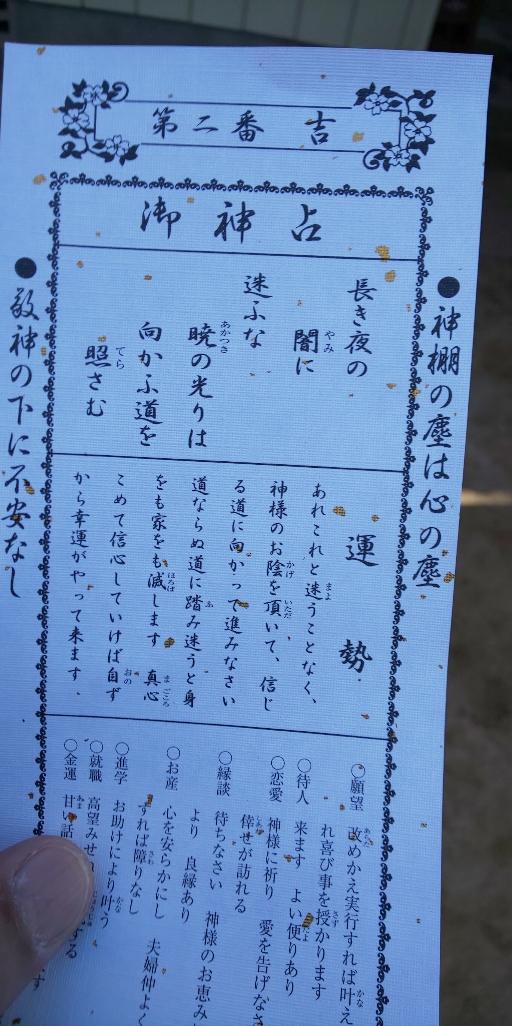 第二番 吉
御神占
●神棚の塵は心の塵
長き夜の
闇に
迷ふな
暁の光りは
向かふ道を
照さむ
運勢
あれこれと迷うことなく、
神様のお陰を頂いて、信じ
る道に向かって進みなさい
道ならぬ道に踏み迷うと身
をも家をも滅します 真心
こめて信心していけば自ず
から幸運がやって来ます.
○願望 改めかえ実行すれば叶え
れ喜び事を授かります
○待人 来ます よい便りあり
○恋愛 神様に祈り 愛を告げなさ
倖せが訪れる
○縁談 待ちなさい 神様のお恵み
より 良縁あり
○お産 心を安らかにし 夫婦仲よく
すれば障りなし
○進学 お助けにより叶う
○就職 高望みせ
○金運 甘い話
●敬神の下に不安なし